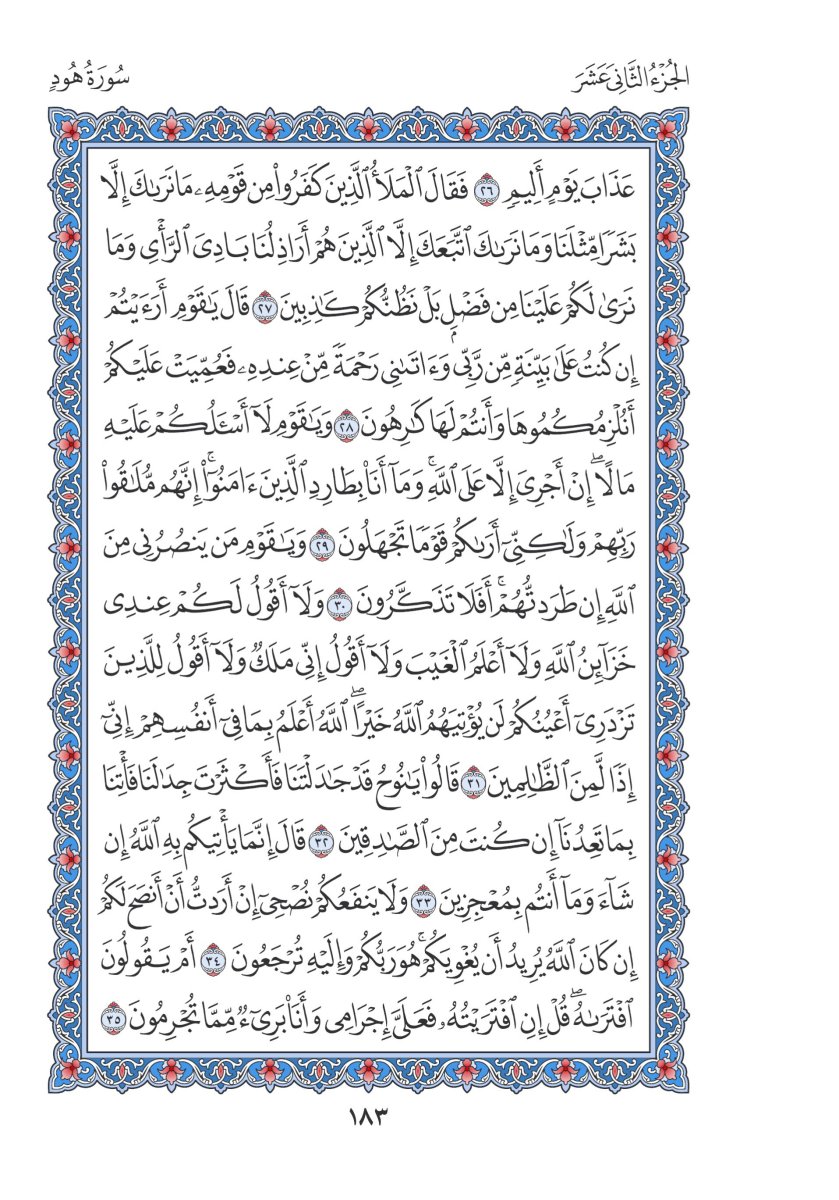 الجُزْءُ الثَّانِيَ عَشَرَ
سُورَةُ هُودٍ
عَذَابَ يَوْمٍ أَلِيمٖ ٢٦ فَقَالَ ٱلۡمَلَأُ ٱلَّذِينَ كَفَرُواْ مِن قَوۡمِهِۦ مَا نَرَىٰكَ إِلَّا
بَشَرٗا مِّثۡلَنَا وَمَا نَرَىٰكَ ٱتَّبَعَكَ إِلَّا ٱلَّذِينَ هُمۡ أَرَاذِلُنَا بَادِيَ ٱلرَّأۡيِ وَمَا
نَرَىٰ لَكُمۡ عَلَيۡنَا مِن فَضۡلِۭ بَلۡ نَظُنُّكُمۡ كَٰذِبِينَ ٢٧ قَالَ يَٰقَوۡمِ أَرَءَيۡتُمۡ
إِن كُنتُ عَلَىٰ بَيِّنَةٖ مِّن رَّبِّي وَءَاتَىٰنِي رَحۡمَةٗ مِّنۡ عِندِهِۦ فَعُمِّيَتۡ عَلَيۡكُمۡ
أَنُلۡزِمُكُمُوهَا وَأَنتُمۡ لَهَا كَٰرِهُونَ ٢٨ وَيَٰقَوۡمِ لَآ أَسۡـَٔلُكُمۡ عَلَيۡهِ
مَالًاۖ إِنۡ أَجۡرِيَ إِلَّا عَلَى ٱللَّهِۚ وَمَآ أَنَا۠ بِطَارِدِ ٱلَّذِينَ ءَامَنُوٓاْۚ إِنَّهُم مُّلَٰقُواْ
رَبِّهِمۡ وَلَٰكِنِّيٓ أَرَىٰكُمۡ قَوۡمٗا تَجۡهَلُونَ ٢٩ وَيَٰقَوۡمِ مَن يَنصُرُنِي مِنَ
ٱللَّهِ إِن طَرَدتُّهُمۡۚ أَفَلَا تَذَكَّرُونَ ٣٠ وَلَآ أَقُولُ لَكُمۡ عِندِي
خَزَآئِنُ ٱللَّهِ وَلَآ أَعۡلَمُ ٱلۡغَيۡبَ وَلَآ أَقُولُ إِنِّي مَلَكٞ وَلَآ أَقُولُ لِلَّذِينَ
تَزۡدَرِيٓ أَعۡيُنُكُمۡ لَن يُؤۡتِيَهُمُ ٱللَّهُ خَيۡرًاۖ ٱللَّهُ أَعۡلَمُ بِمَا فِيٓ أَنفُسِهِمۡ إِنِّيٓ
إِذٗا لَّمِنَ ٱلظَّٰلِمِينَ ٣١ قَالُواْ يَٰنُوحُ قَدۡ جَٰدَلۡتَنَا فَأَكۡثَرۡتَ جِدَٰلَنَا فَأۡتِنَا
بِمَا تَعِدُنَآ إِن كُنتَ مِنَ ٱلصَّٰدِقِينَ ٣٢ قَالَ إِنَّمَا يَأۡتِيكُم بِهِ ٱللَّهُ إِن
شَآءَ وَمَآ أَنتُم بِمُعۡجِزِينَ ٣٣ وَلَا يَنفَعُكُمۡ نُصۡحِيٓ إِنۡ أَرَدتُّ أَنۡ أَنصَحَ لَكُمۡ
إِن كَانَ ٱللَّهُ يُرِيدُ أَن يُغۡوِيَكُمۡۚ هُوَ رَبُّكُمۡ وَإِلَيۡهِ تُرۡجَعُونَ ٣٤ أَمۡ يَقُولُونَ
ٱفۡتَرَىٰهُۖ قُلۡ إِنِ ٱفۡتَرَيۡتُهُۥ فَعَلَيَّ إِجۡرَامِي وَأَنَا۠ بَرِيٓءٞ مِّمَّا تُجۡرِمُونَ ٣٥
١٨٣